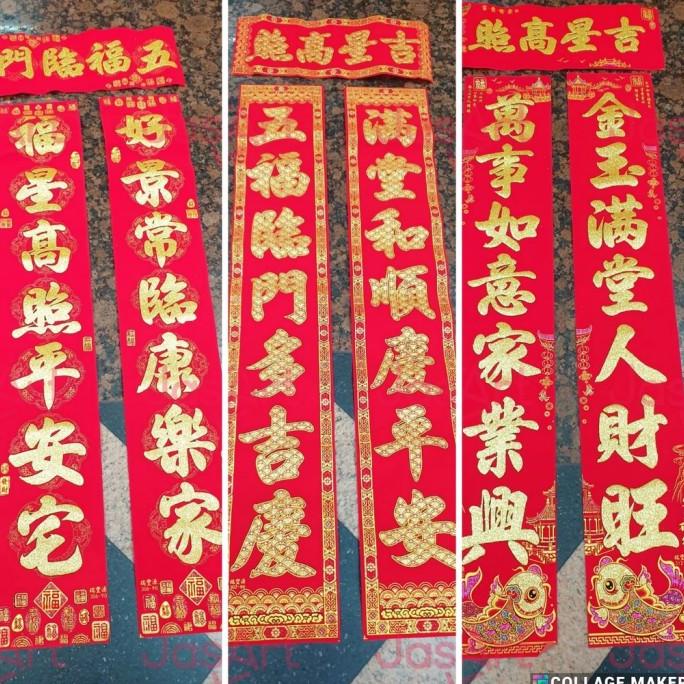 五福臨門
好景常臨康樂家
福星高照平安宅
吉星高照
滿堂和順慶平安
五福臨門多吉慶
吉星高照
金玉滿堂人財旺
萬事如意家業興
福
福
JasArt
JasArt
JasArt
COLLAGE MAKER